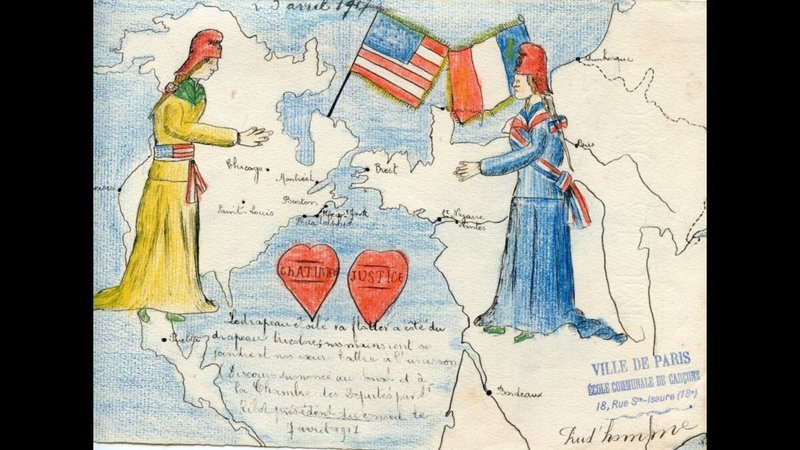 avril 1917
Dunkerque
Paris
Chicago
Montréal
Brest
Boston
New-York
Saint-Louis
St Nazaire
Nantes
JUSTICE
Le drapeau étoilé va flotter à côté du
drapeau tricolore, nos mains vont se
joindre et nos cœurs battre à l'unisson
Discours au et à
la Chambre des Députés par Mr
Ribot président du le
avril 1917
Bordeaux
VILLE DE PARIS
ÉCOLE COMMUNALE DE GARÇONS
18, Rue Ste-Isaure (18e)
Prud'homme